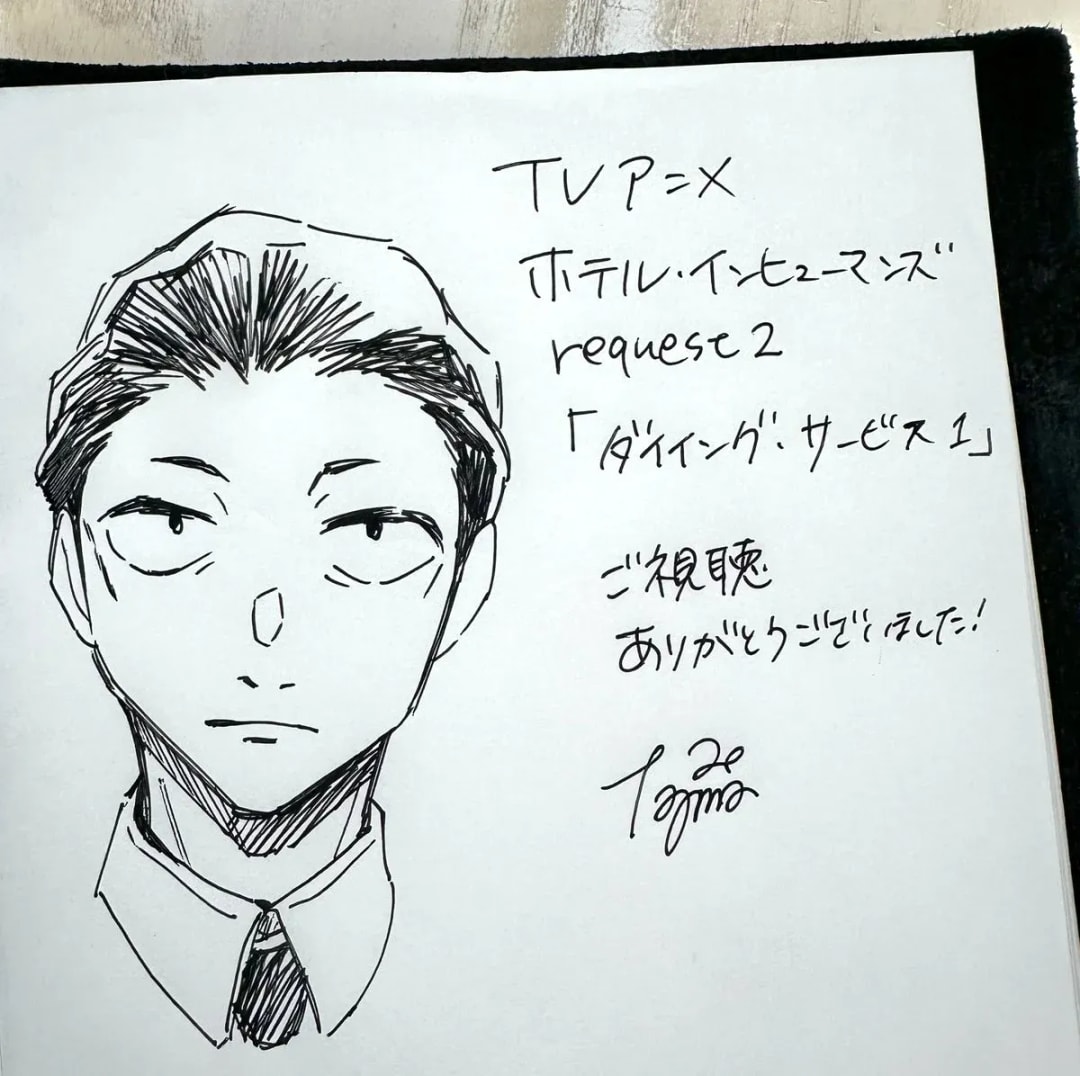 TVアニメ
ホテル・インヒューマンズ
request 2
「ダイイング・サービス1」
ご視聴
ありがとうございました!
Tajima